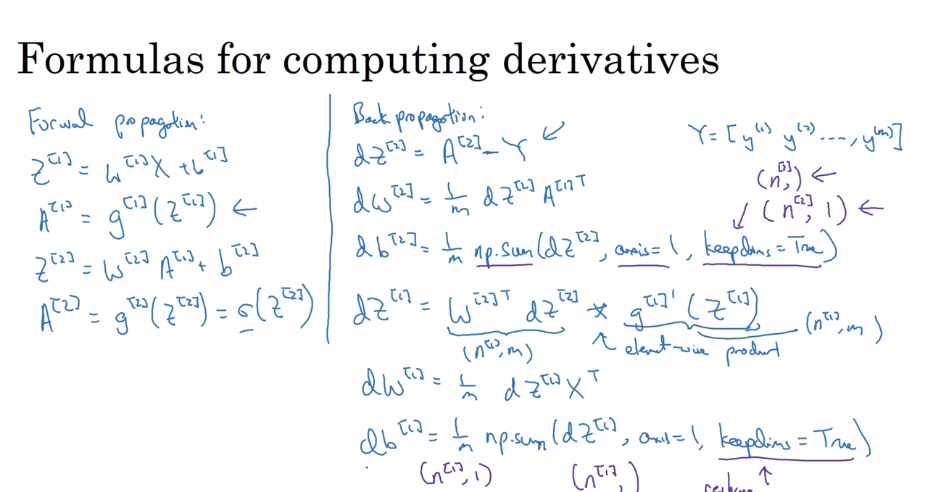 Formulas for computing derivatives
Forward propagation:
Z^[1] = W^[1]X + b^[1]
A^[1] = g^[1](Z^[1]) ←
Z^[2] = W^[2]A^[1] + b^[2]
A^[2] = g^[2](Z^[2]) = σ(Z^[2])
Back propagation:
dZ^[2] = A^[2] - Y
dW^[2] = 1/m dZ^[2] A^[1]T
db^[2] = 1/m np.sum(dZ^[2], axis = 1, keepdims = True)
dZ^[1] = W^[2]T dZ^[2] * g^[1]'(Z^[1])
(n^[1], m)
element-wise product
(n^[1], m)
dW^[1] = 1/m dZ^[1] X^T
db^[1] = 1/m np.sum(dZ^[1], axis = 1, keepdims = True)
(n^[1], 1)
(n^[1],)
Y = [y^(1) y^(2) ..., y^(m)]
(n^[2],) ←
(n^[2], 1) ←